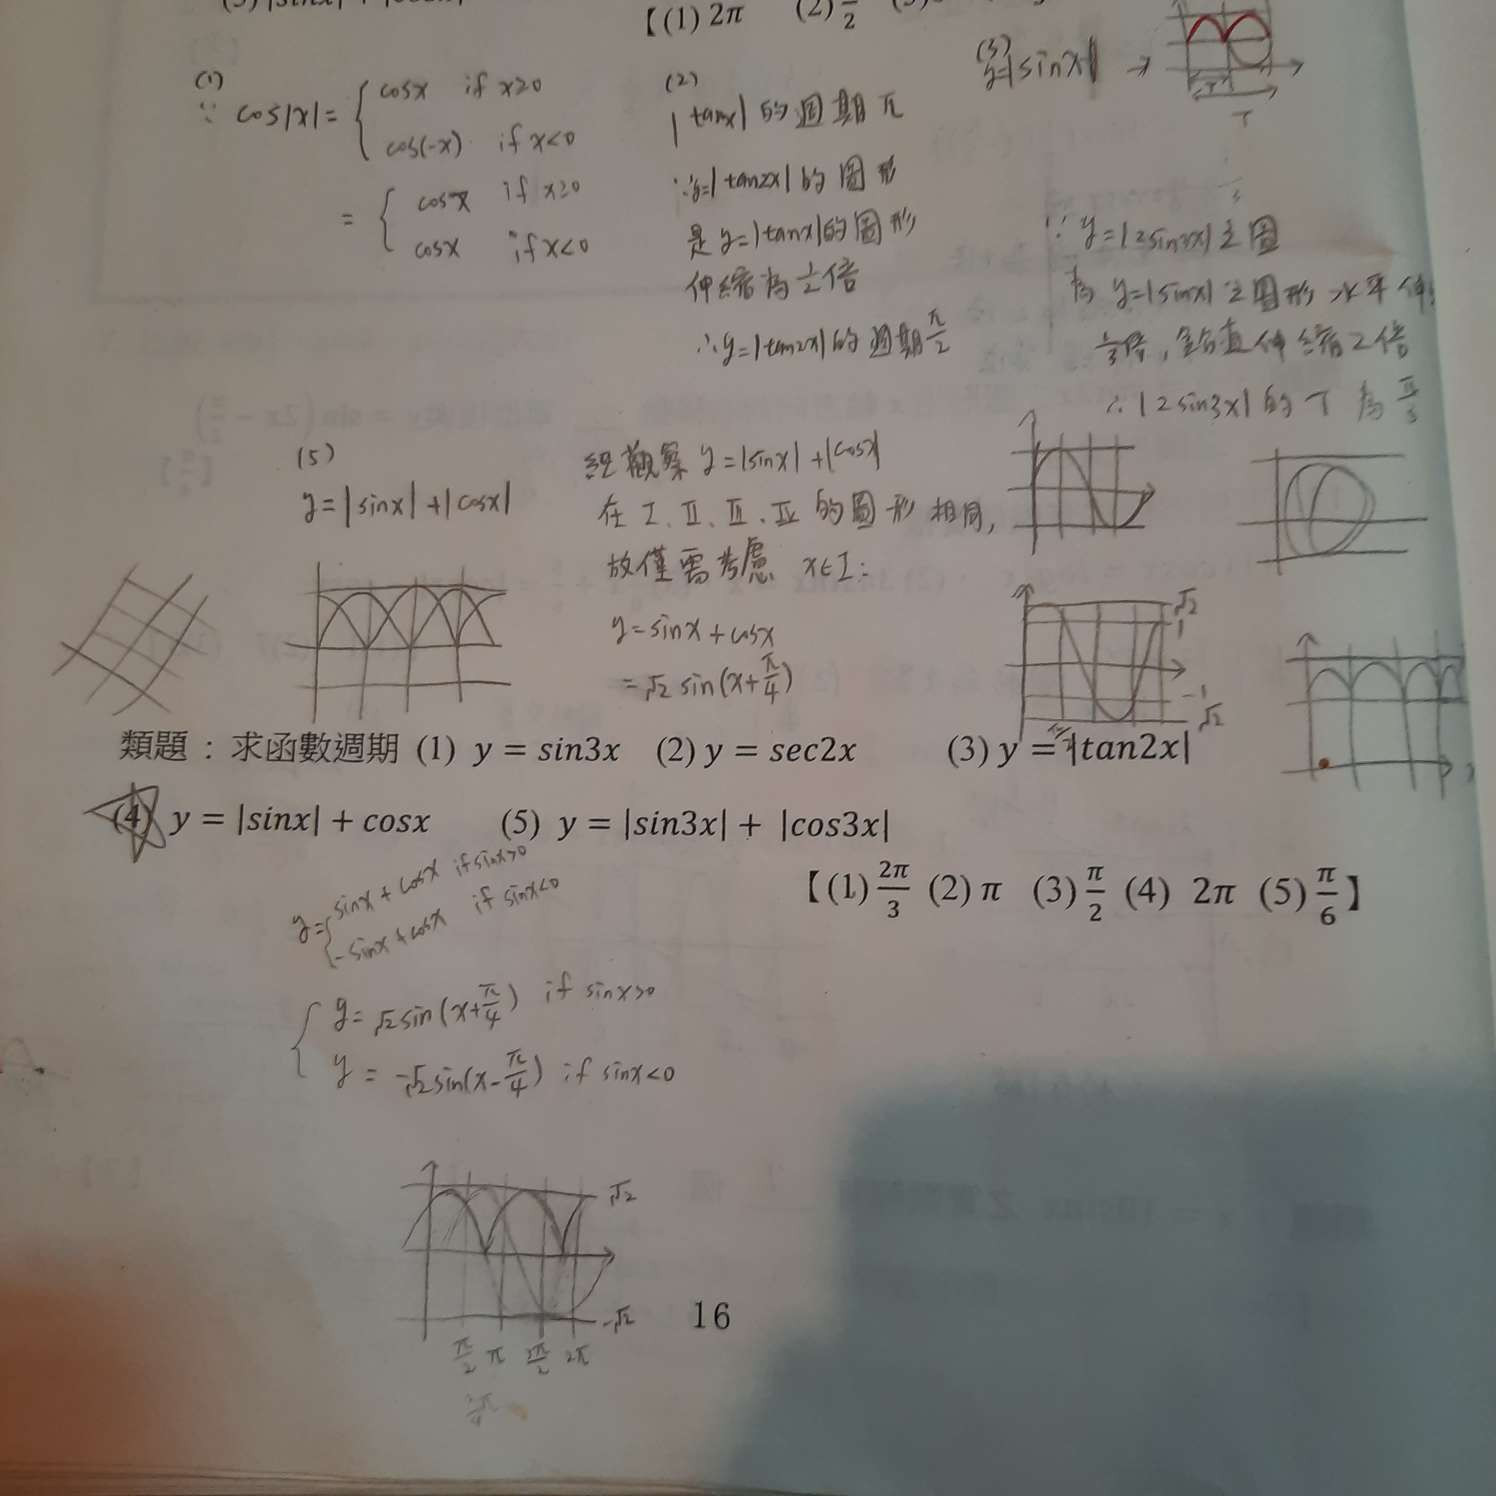 【(1) 2π (2)
(1)
∵ cos|x| = { cosx if x≥0
cos(-x) if x<0
= { cosx if x≥0
cosx if x<0
(2)
|tanx| 的週期 π
∵ y=|tan2x| 的圖形
是 y=|tanx| 的圖形
伸縮為 1/2 倍
∴ y=|tan2x| 的週期 π/2
(3)
y=|sinx| →
T
∵ y=|2sin3x| 之圖
為 y=|sinx| 之圖形水平伸
1/3倍, 鉛直伸縮2倍
∴ |2sin3x| 的 T 為 π/3
(5)
y=|sinx|+|cosx|
經觀察 y=|sinx|+|cosx|
在 I、II、III、IV 的圖形相同,
故僅需考慮 x∈I:
y=sinx+cosx
=√2 sin(x+π/4)
√2
1
-1
-√2
類題：求函數週期 (1) y = sin3x (2) y = sec2x (3) y = |tan2x|
(4) y = |sinx| + cosx (5) y = |sin3x| + |cos3x|
【(1) 2π/3 (2) π (3) π/2 (4) 2π (5) π/6】
y={ sinx+cosx if sinx>0
-sinx+cosx if sinx<0
{ y=√2 sin(x+π/4) if sinx>0
y=-√2 sin(x-π/4) if sinx<0
√2
-√2
π/2 π 3π/2 2π
16